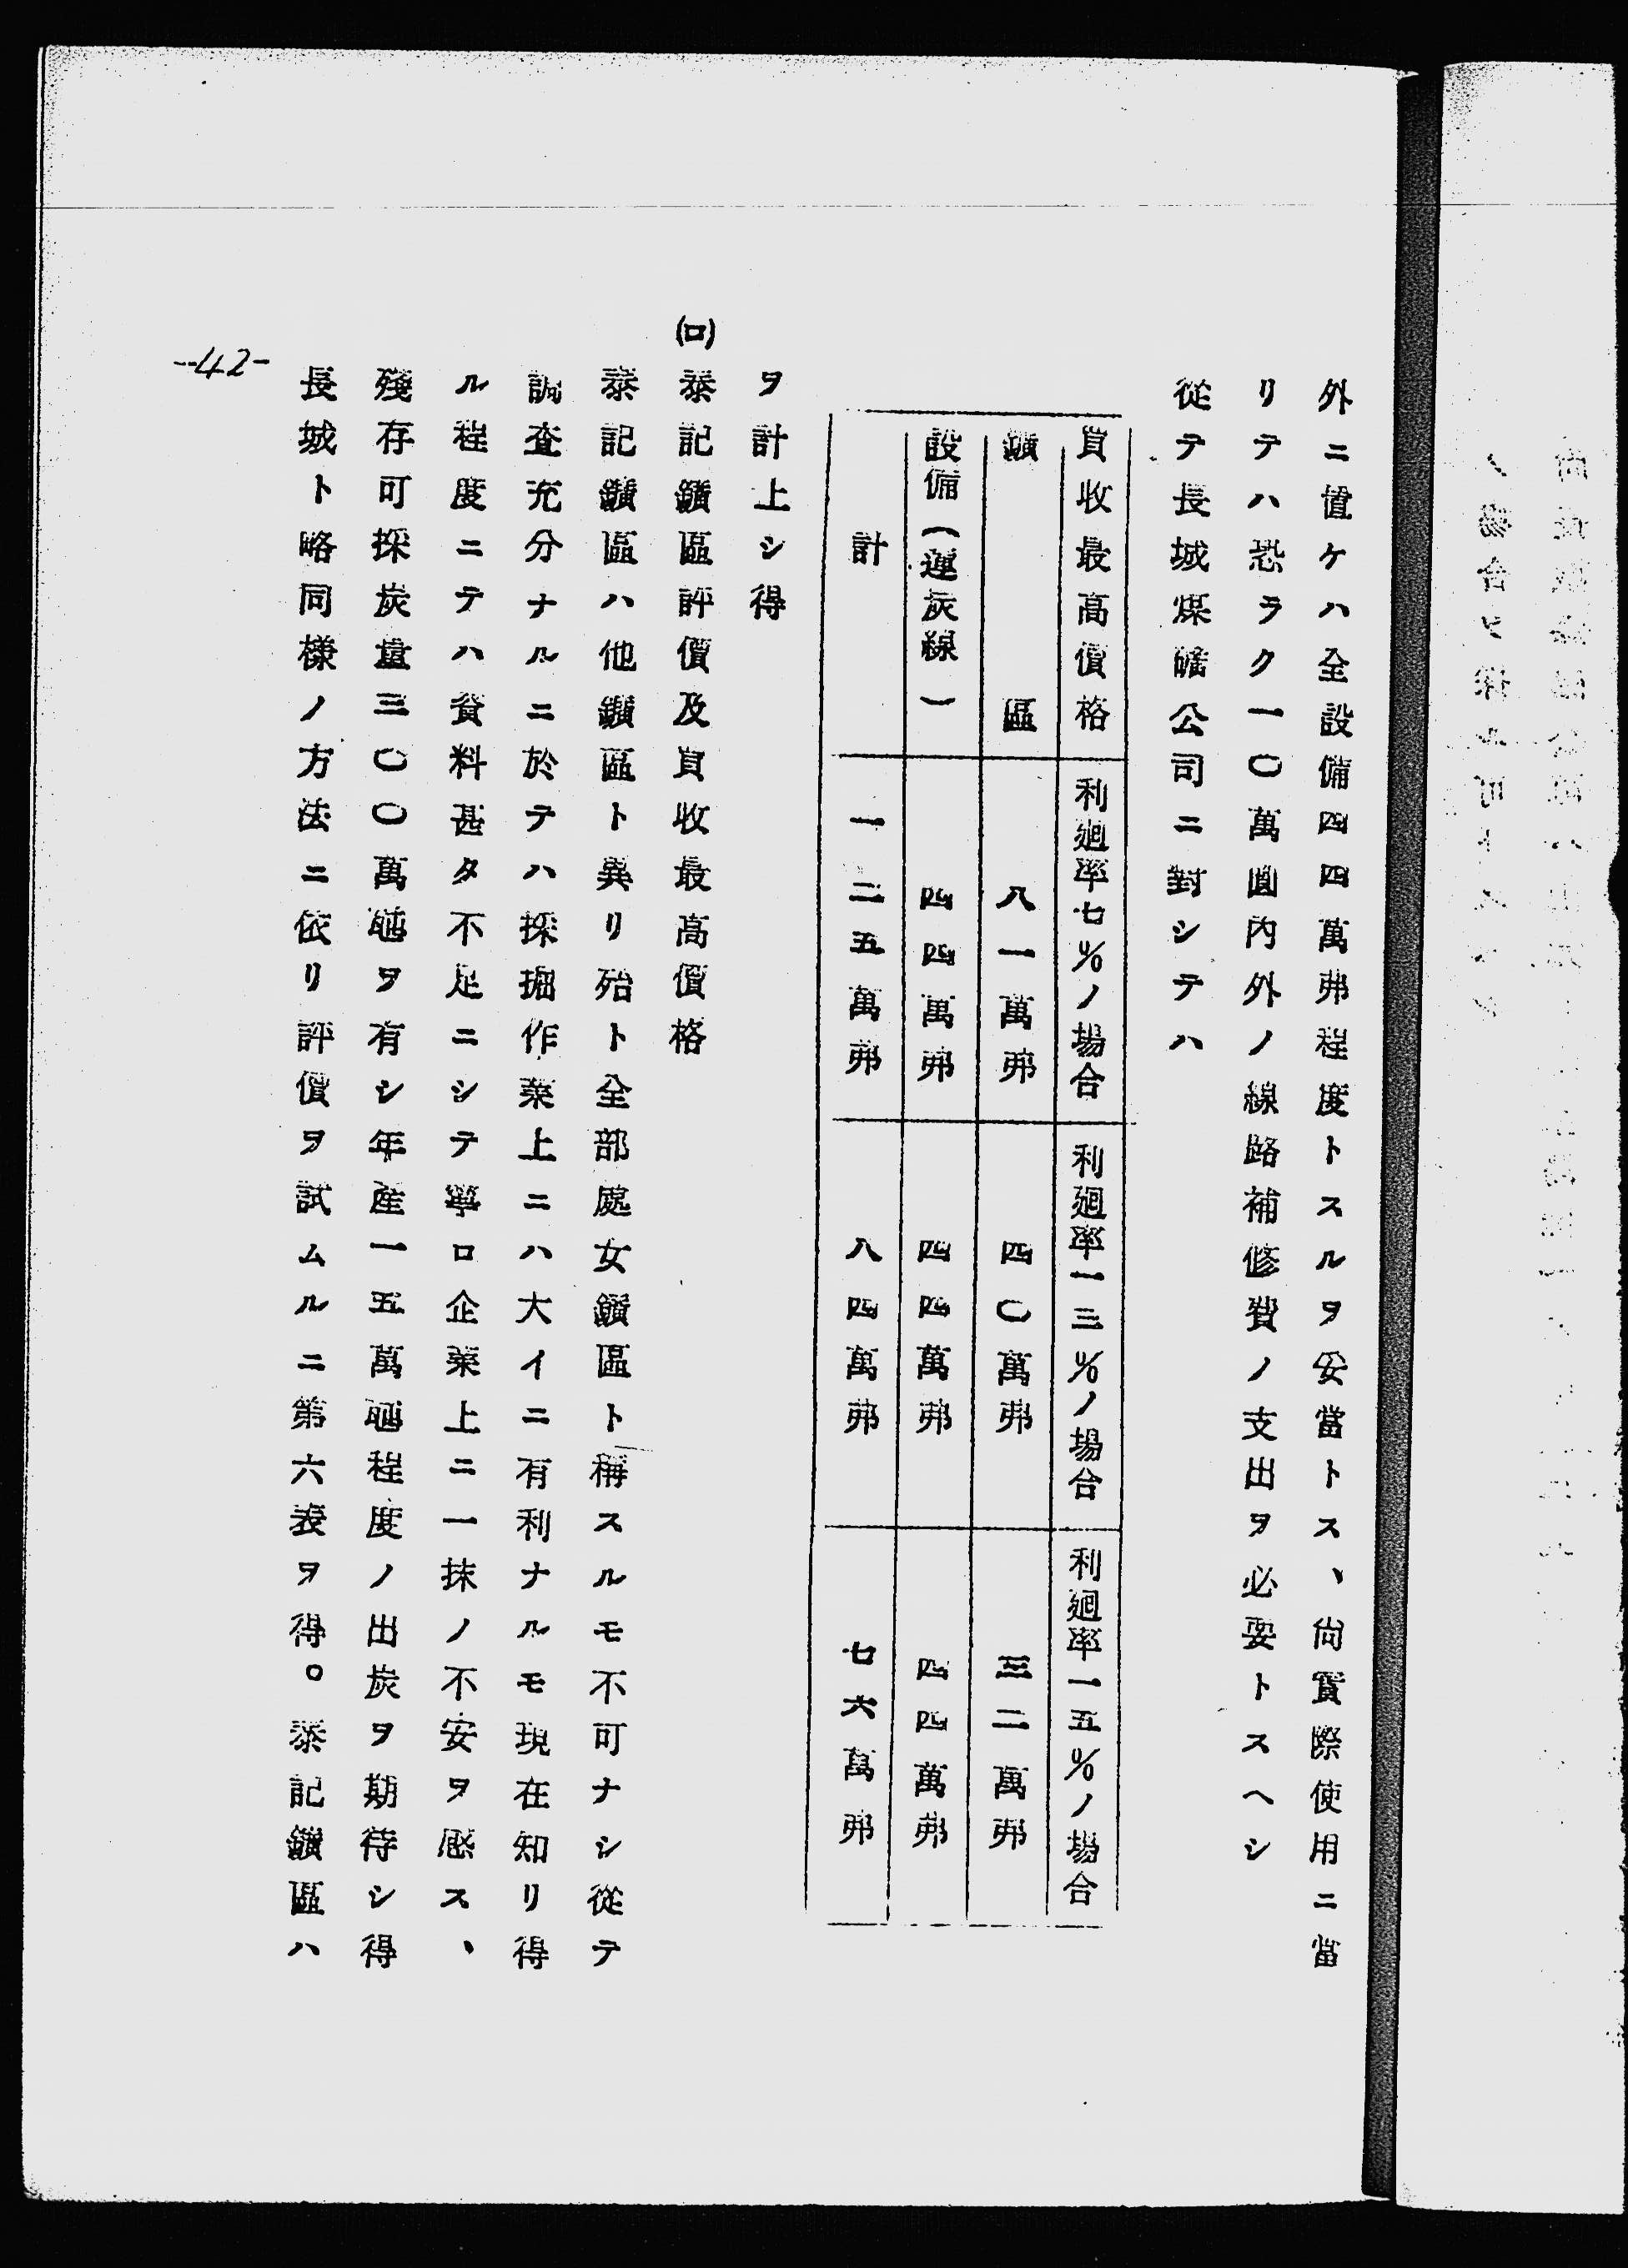 外ニ置ケハ全設備四四萬弗程度トスルヲ妥當トス、尙實際使用ニ當
リテハ恐ラク一〇萬圓內外ノ線路補修費ノ支出ヲ必要トスヘシ
從テ長城煤礦公司ニ對シテハ
買收最高價格 利廻率七%ノ場合 利廻率一三%ノ場合 利廻率一五%ノ場合
鑛區 八一萬弗 四〇萬弗 三二萬弗
設備(運炭線) 四四萬弗 四四萬弗 四四萬弗
計 一二五萬弗 八四萬弗 七六萬弗
ヲ計上シ得
(ロ)泰記鑛區評價及買收最高價格
泰記鑛區ハ他鑛區ト異リ殆ト全部處女鑛區ト稱スルモ不可ナシ從テ
調査充分ナルニ於テハ採掘作業上ニハ大イニ有利ナルモ現在知リ得
ル程度ニテハ資料甚タ不足ニシテ寧ロ企業上ニ一抹ノ不安ヲ感ス、
殘存可採炭量三〇〇萬瓲ヲ有シ年產一五萬瓲程度ノ出炭ヲ期待シ得
長城ト略同樣ノ方法ニ依リ評價ヲ試ムルニ第六表ヲ得。泰記鑛區ハ
-42-